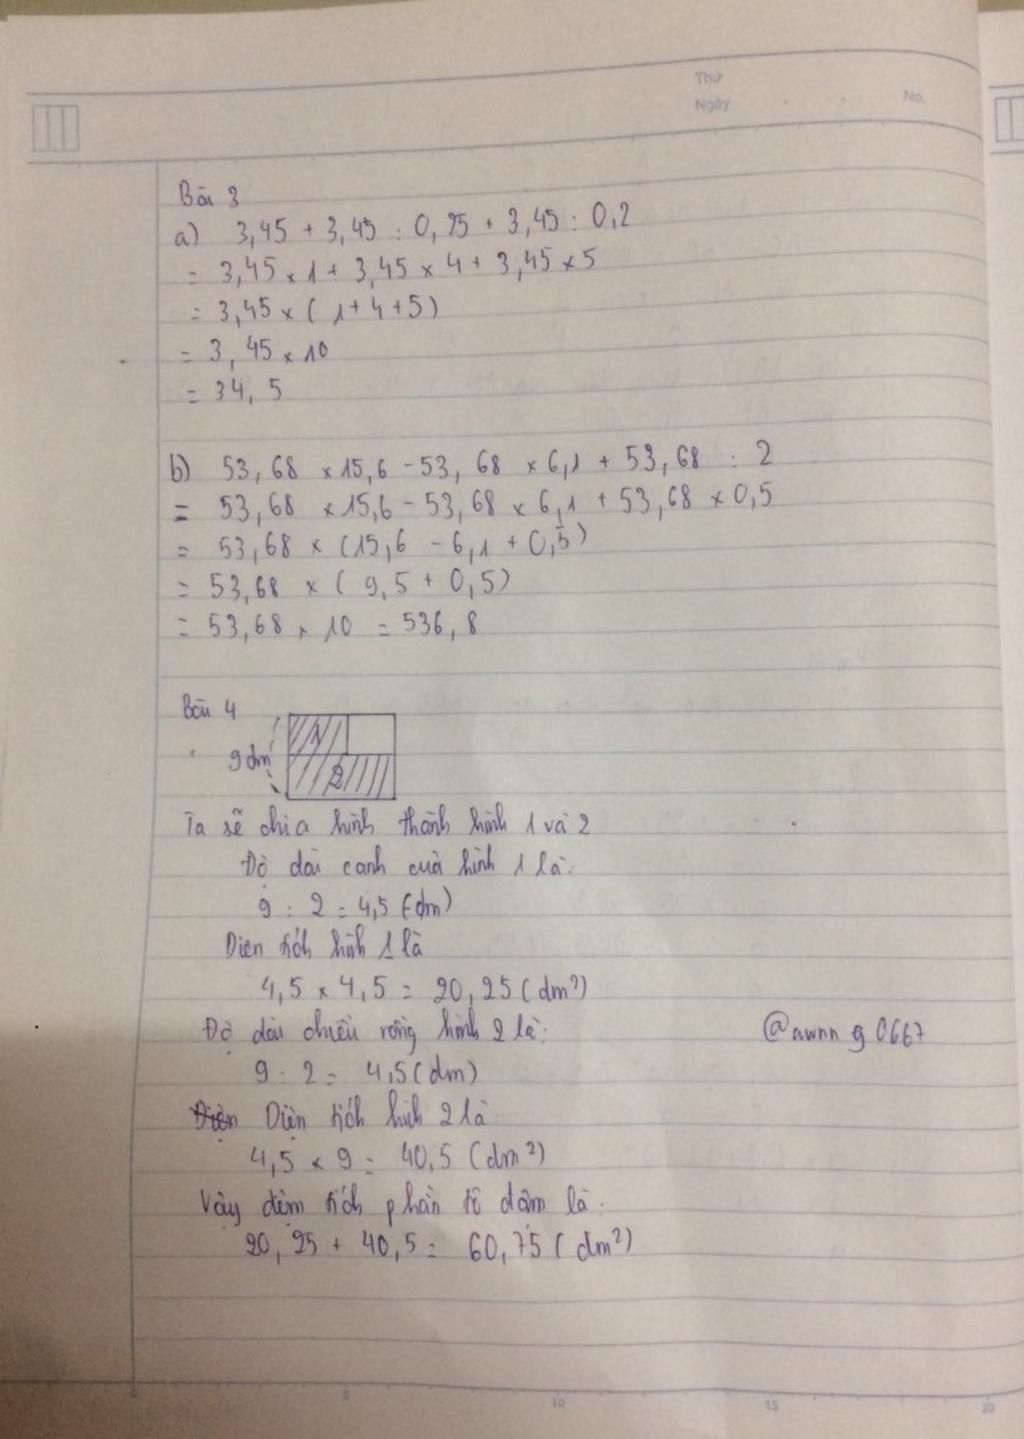 Thứ
Ngày
No.
Bài 3
a) 3,45 + 3,45 : 0,25 + 3,45 : 0,2
= 3,45 x 1 + 3,45 x 4 + 3,45 x 5
= 3,45 x ( 1 + 4 + 5)
= 3,45 x 10
= 34,5
b) 53,68 x 15,6 - 53,68 x 6,1 + 53,68 : 2
= 53,68 x 15,6 - 53,68 x 6,1 + 53,68 x 0,5
= 53,68 x (15,6 - 6,1 + 0,5)
= 53,68 x ( 9,5 + 0,5)
= 53,68 x 10 = 536,8
Bài 4
1
9 dm
2
Ta sẽ chia hình thành hình 1 và 2
Độ dài cạnh của hình 1 là:
9 : 2 = 4,5 (dm)
Diện tích hình 1 là
4,5 x 4,5 = 20,25 (dm²)
Độ dài chiều rộng hình 2 là:
@awnn g 0667
9 : 2 = 4,5 (dm)
Diện Diện tích hình 2 là:
4,5 x 9 = 40,5 (dm²)
Vậy diện tích phần tô đậm là:
20,25 + 40,5 = 60,75 (dm²)
0 5 10 15 20